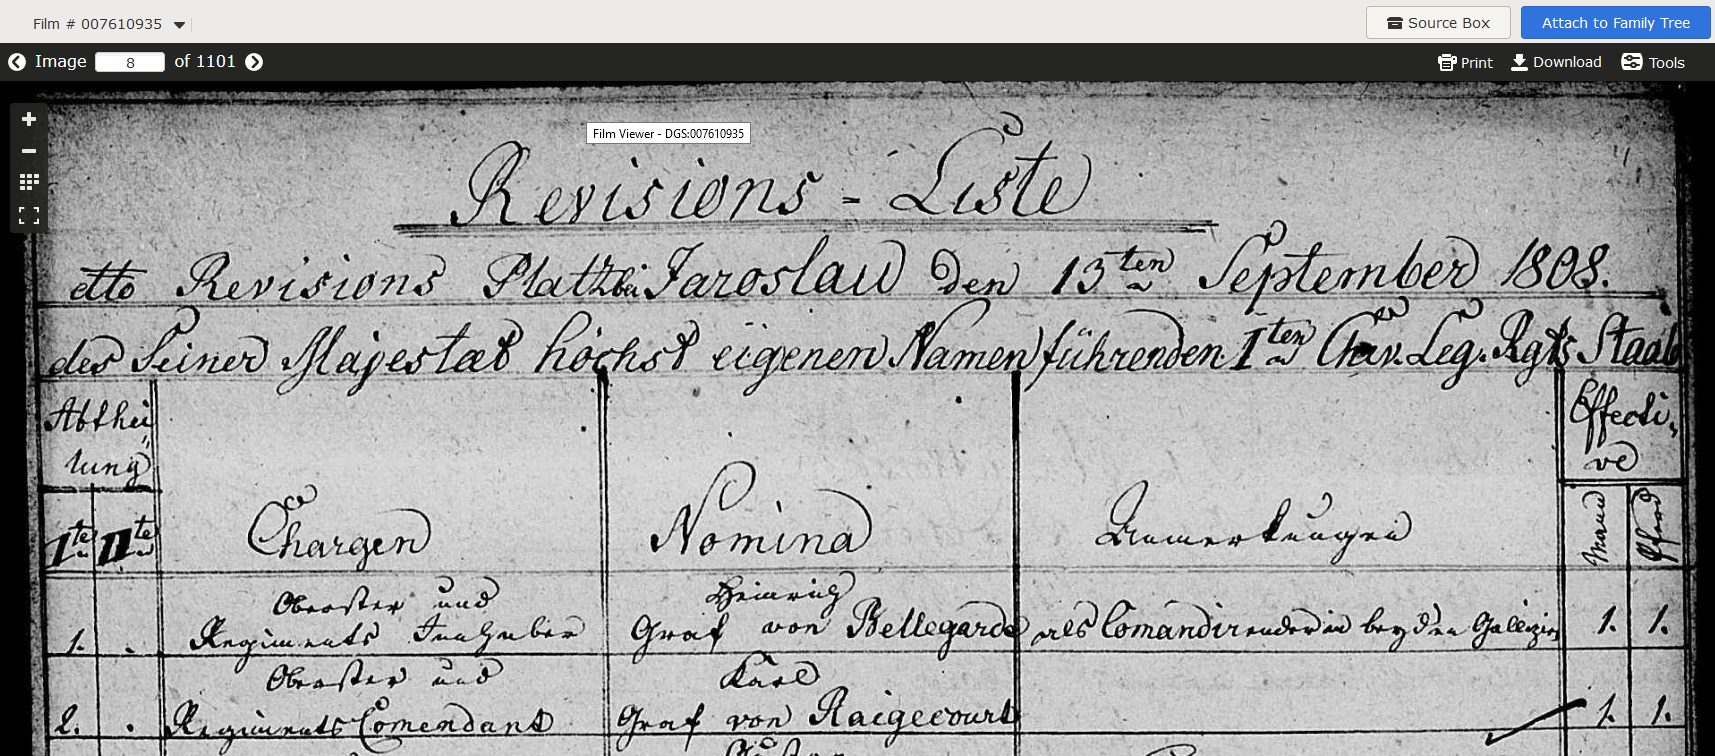 Film # 007610935
Source Box
Attach to Family Tree
Image 8 of 1101
Print Download Tools
Film Viewer - DGS:007610935
Revisions - Liste
dtto Revisions Platz bei Jaroslau den 13ten September 1808.
des Seiner Majestæt höchst eigenen Namen führenden Iten Chev. Leg. Rgts Staab
Abthei
lung
Effecti,
ve
Ite IIte Chargen Nomina Anmerkungen Mann Pferd
Obrister und Heinrich
1. . Regiments Innhaber Graf von Bellegarde als Comandirender in beyden Gallizien 1. 1.
Obrister und Karl
2. . Regiments Comendant Graf von Raigecourt 1. 1.